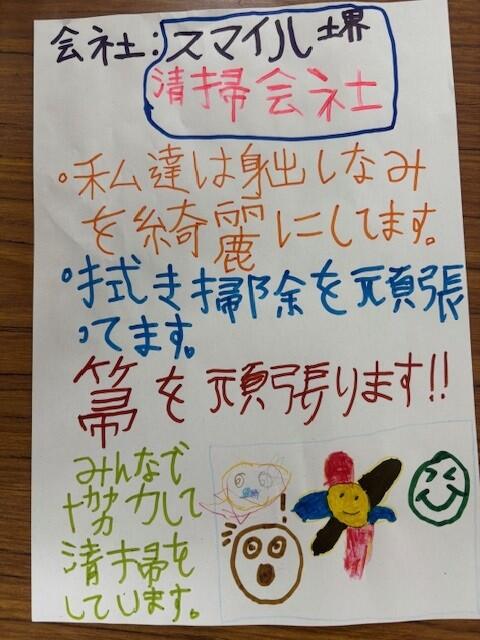 会社:スマイル堺
清掃会社
。私達は身出しなみ
を綺麗にしてます。
。拭き掃除を頑張
ってます。
箒を頑張ります!!
みんなで
協力して
清掃を
しています。
!